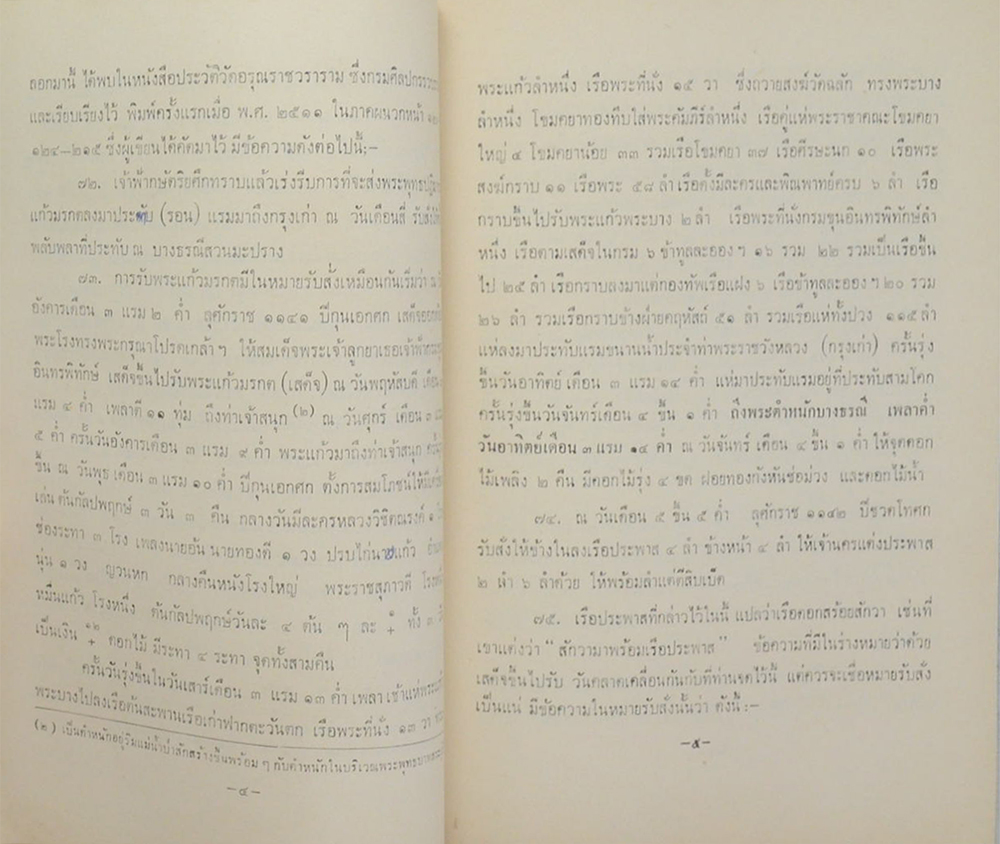 ถอกมานี้ ได้พบในหนังสือประวัติวัดอรุณราชวราราม ซึ่งกรมศิลปากร
และเรียบเรียงไว้ พิมพ์ครั้งแรกเมื่อ พ.ศ. ๒๕๑๑ ในภาคผนวกหน้า
๑๒๔–๒๑๕ ซึ่งผู้เขียนได้คัดมาไว้ มีข้อความดังต่อไปนี้;–
๗๒. เจ้าฟ้ากษัตริยศึกทราบแล้วเร่งรีบการที่จะส่งพระพุทธปฏิมา
แก้วมรกตลงมาประทับ (รอน) แรมมาถึงกรุงเก่า ณ วันเดือนสี่
พลับพลาที่ประทับ ณ บางธรณีสวนมะปราง
๗๓. การรับพระแก้วมรกตมีในหมายรับสั่งเหมือนกันเริ่มว่า ณ
อังคารเดือน ๓ แรม ๒ ค่ำ ลุศักราช ๑๑๔๑ ปีกุนเอกศก เสด็จออก
พระโรงทรงพระกรุณาโปรดเกล้า ฯ ให้สมเด็จพระเจ้าลูกยาเธอเจ้าฟ้า
อินทรพิทักษ์ เสด็จขึ้นไปรับพระแก้วมรกต (เสด็จ) ณ วันพฤหัสบดี เดือน
แรม ๔ ค่ำ เพลาตี ๑๑ ทุ่ม ถึงท่าเจ้าสนุก (๒) ณ วันศุกร์ เดือน ๓ แรม
๕ ค่ำ ครั้นวันอังคารเดือน ๓ แรม ๙ ค่ำ พระแก้วมาถึงท่าเจ้าสนุก
ขึ้น ณ วันพุธ เดือน ๓ แรม ๑๐ ค่ำ ปีกุนเอกศก ตั้งการสมโภชน์ให้มี
เล่น ต้นกัลปพฤกษ์ ๓ วัน ๓ คืน กลางวันมีละครหลวงวิชิตณรงค์ ๑
ช่องระทา ๓ โรง เพลงนายอัน นายทองดี ๑ วง ปรบไก่นายแก้ว
นุ่น ๑ วง ญวนหก กลางคืนหนังโรงใหญ่ พระราชสุภาวดี โรงหนึ่ง
หมื่นแก้ว โรงหนึ่ง ต้นกัลปพฤกษ์วันละ ๔ ต้น ๆ ละ ๑ + ทั้ง ๓
เป็นเงิน ๑๒ + ดอกไม้ มีระทา ๔ ระทา จุดทั้งสามคืน
ครั้นวันรุ่งขึ้นในวันเสาร์เดือน ๓ แรม ๑๓ ค่ำ เพลา เช้าแห่พระ
พระบางไปลงเรือต้นสะพานเรือเก่าฟากตะวันตก เรือพระที่นั่ง ๑๓ วา
(๒) เป็นตำหนักอยู่ริมแม่น้ำป่าสักสร้างขึ้นพร้อม ๆ กับตำหนักในบริเวณพระพุทธบาท
–๔–
พระแก้วลำหนึ่ง เรือพระที่นั่ง ๑๕ วา ซึ่งถวายสงฆ์วัดฉลัก ทรงพระบาง
ลำหนึ่ง โขมดยาทองทึบใส่พระคัมภีร์ลำหนึ่ง เรือคู่แห่พระราชาคณะโขมดยา
ใหญ่ ๔ โขมดยาน้อย ๓๓ รวมเรือโขมดยา ๓๗ เรือศีรษะนก ๑๐ เรือพระ
สงฆ์กราบ ๑๑ เรือพระ ๕๘ ลำ เรือดั้งมีละครและพิณพาทย์ครบ ๖ ลำ เรือ
กราบขึ้นไปรับพระแก้วพระบาง ๒ ลำ เรือพระที่นั่งกรมขุนอินทรพิทักษ์ลำ
หนึ่ง เรือตามเสด็จในกรม ๖ ข้าทูลละออง ฯ ๑๖ รวม ๒๒ รวมเป็นเรือขึ้น
ไป ๒๕ ลำ เรือกราบลงมาแต่กองทัพเรือแฝง ๖ เรือข้าทูลละออง ฯ ๒๐ รวม
๒๖ ลำ รวมเรือกราบข้างฝ่ายคฤหัสถ์ ๕๑ ลำ รวมเรือแห่ทั้งปวง ๑๑๕ ลำ
แห่ลงมาประทับแรมขนานน้ำประจำท่าพระราชวังหลวง (กรุงเก่า) ครั้นรุ่ง
ขึ้นวันอาทิตย์ เดือน ๓ แรม ๑๔ ค่ำ แห่มาประทับแรมอยู่ที่ประทับสามโคก
ครั้นรุ่งขึ้นวันจันทร์เดือน ๔ ขึ้น ๑ ค่ำ ถึงพระตำหนักบางธรณี เพลาค่ำ
วันอาทิตย์เดือน ๓ แรม ๑๔ ค่ำ ณ วันจันทร์ เดือน ๔ ขึ้น ๑ ค่ำ ให้จุดดอก
ไม้เพลิง ๒ คืน มีดอกไม้รุ่ง ๔ ขด ฝอยทองกังหันช่อม่วง และดอกไม้น้ำ
๗๔. ณ วันเดือน ๕ ขึ้น ๕ ค่ำ ลุศักราช ๑๑๔๒ ปีชวดโทศก
รับสั่งให้ข้างในลงเรือประพาส ๔ ลำ ข้างหน้า ๔ ลำ ให้เจ้านครแต่งประพาส
๒ ลำ ๖ ลำด้วย ให้พร้อมลำแต่ตีสิบเบ็ด
๗๕. เรือประพาสที่กล่าวไว้ในนี้ แปลว่าเรือดอกสร้อยสักวา เช่นที่
เขาแต่งว่า “ สักวามาพร้อมเรือประพาส ” ข้อความที่มีในร่างหมายว่าด้วย
เสด็จขึ้นไปรับ วันคลาดเคลื่อนกันกับที่ท่านจดไว้นี้ แต่ควรจะเชื่อหมายรับสั่ง
เป็นแน่ มีข้อความในหมายรับสั่งนั้นว่า ดังนี้ :–
–๕–